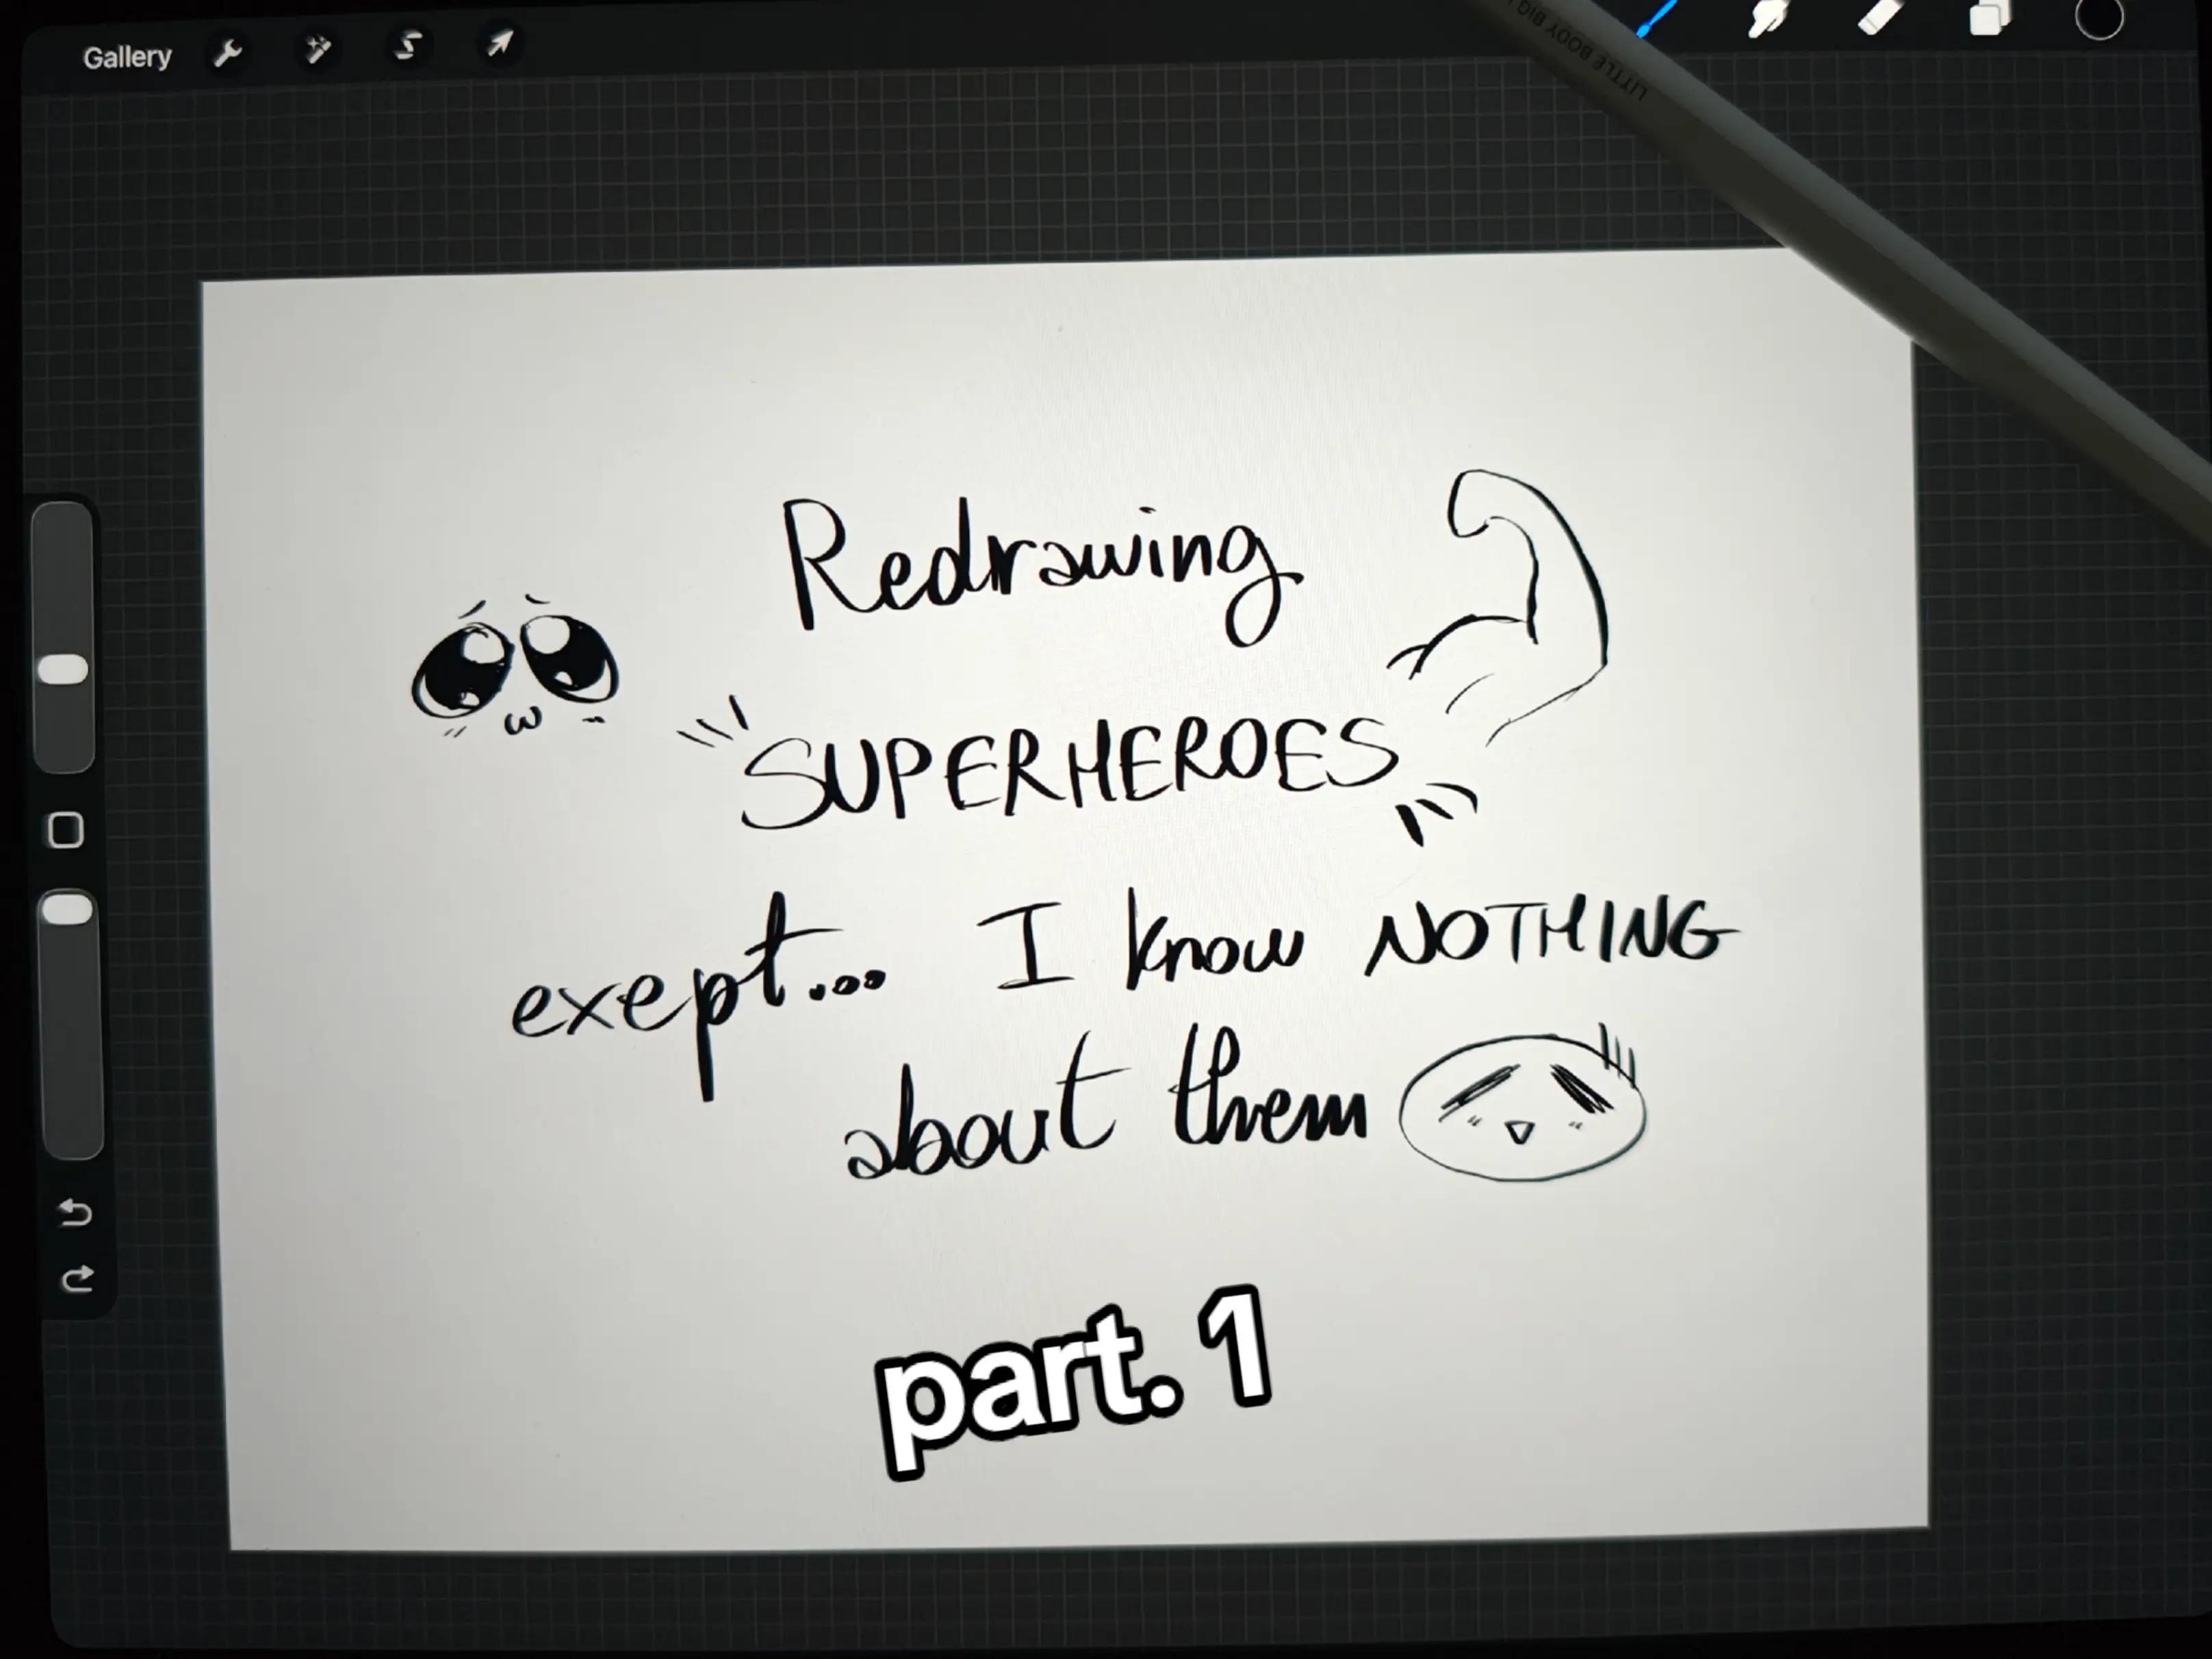 Gallery
LITTLE BODY BIG
Redrawing
SUPERHEROES
exept... I know NOTHING
about them
part. 1